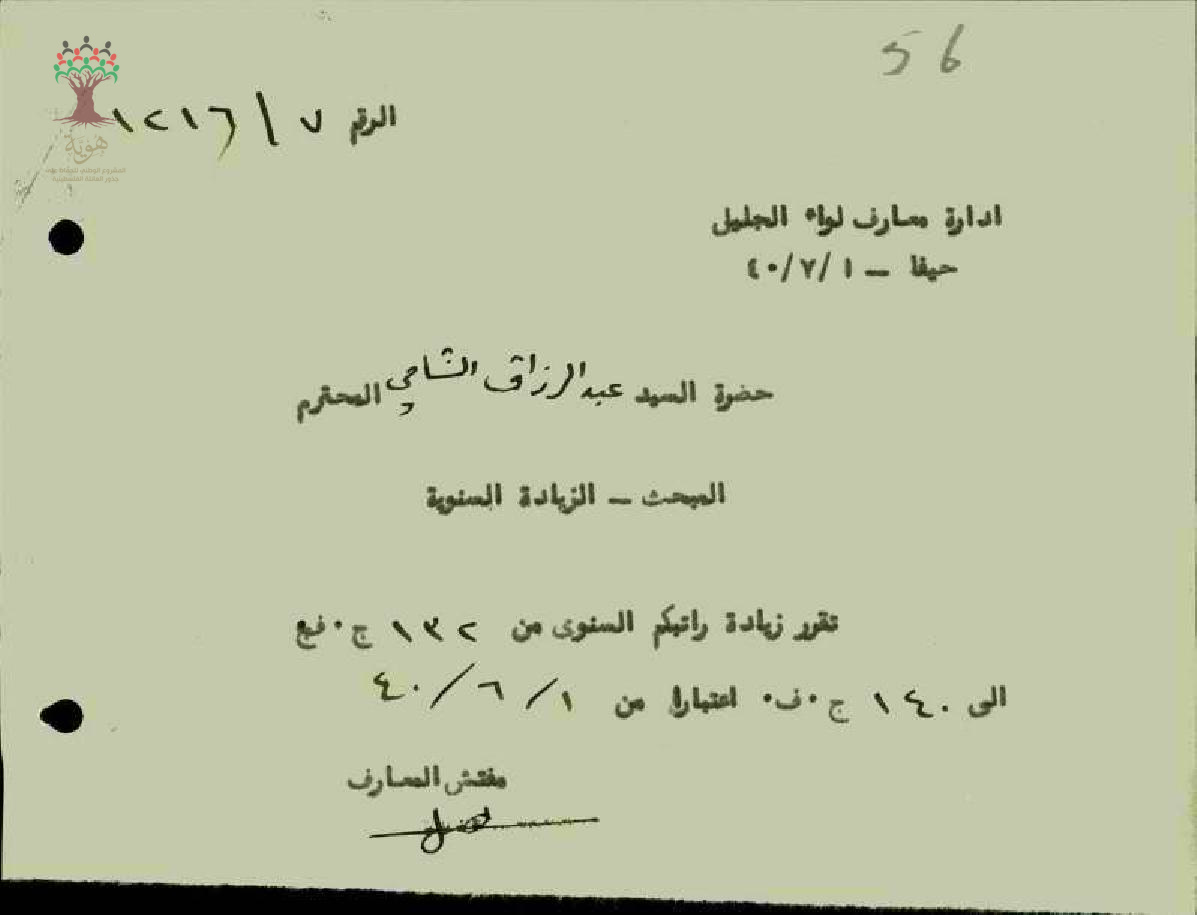 56
الرقم ٧/١٢١٦
هوية
ادارة معارف لواء الجليل
حيفا — ٤٠/٧/١
حضرة السيد عبد الرزاق الشامي المحترم
المبحث — الزيادة السنوية
تقرر زيادة راتبكم السنوى من ١٣٢ ج٠ف
الى ١٤٠ ج٠ف٠ اعتبارا من ٤٠/٦/١
مفتش المعارف